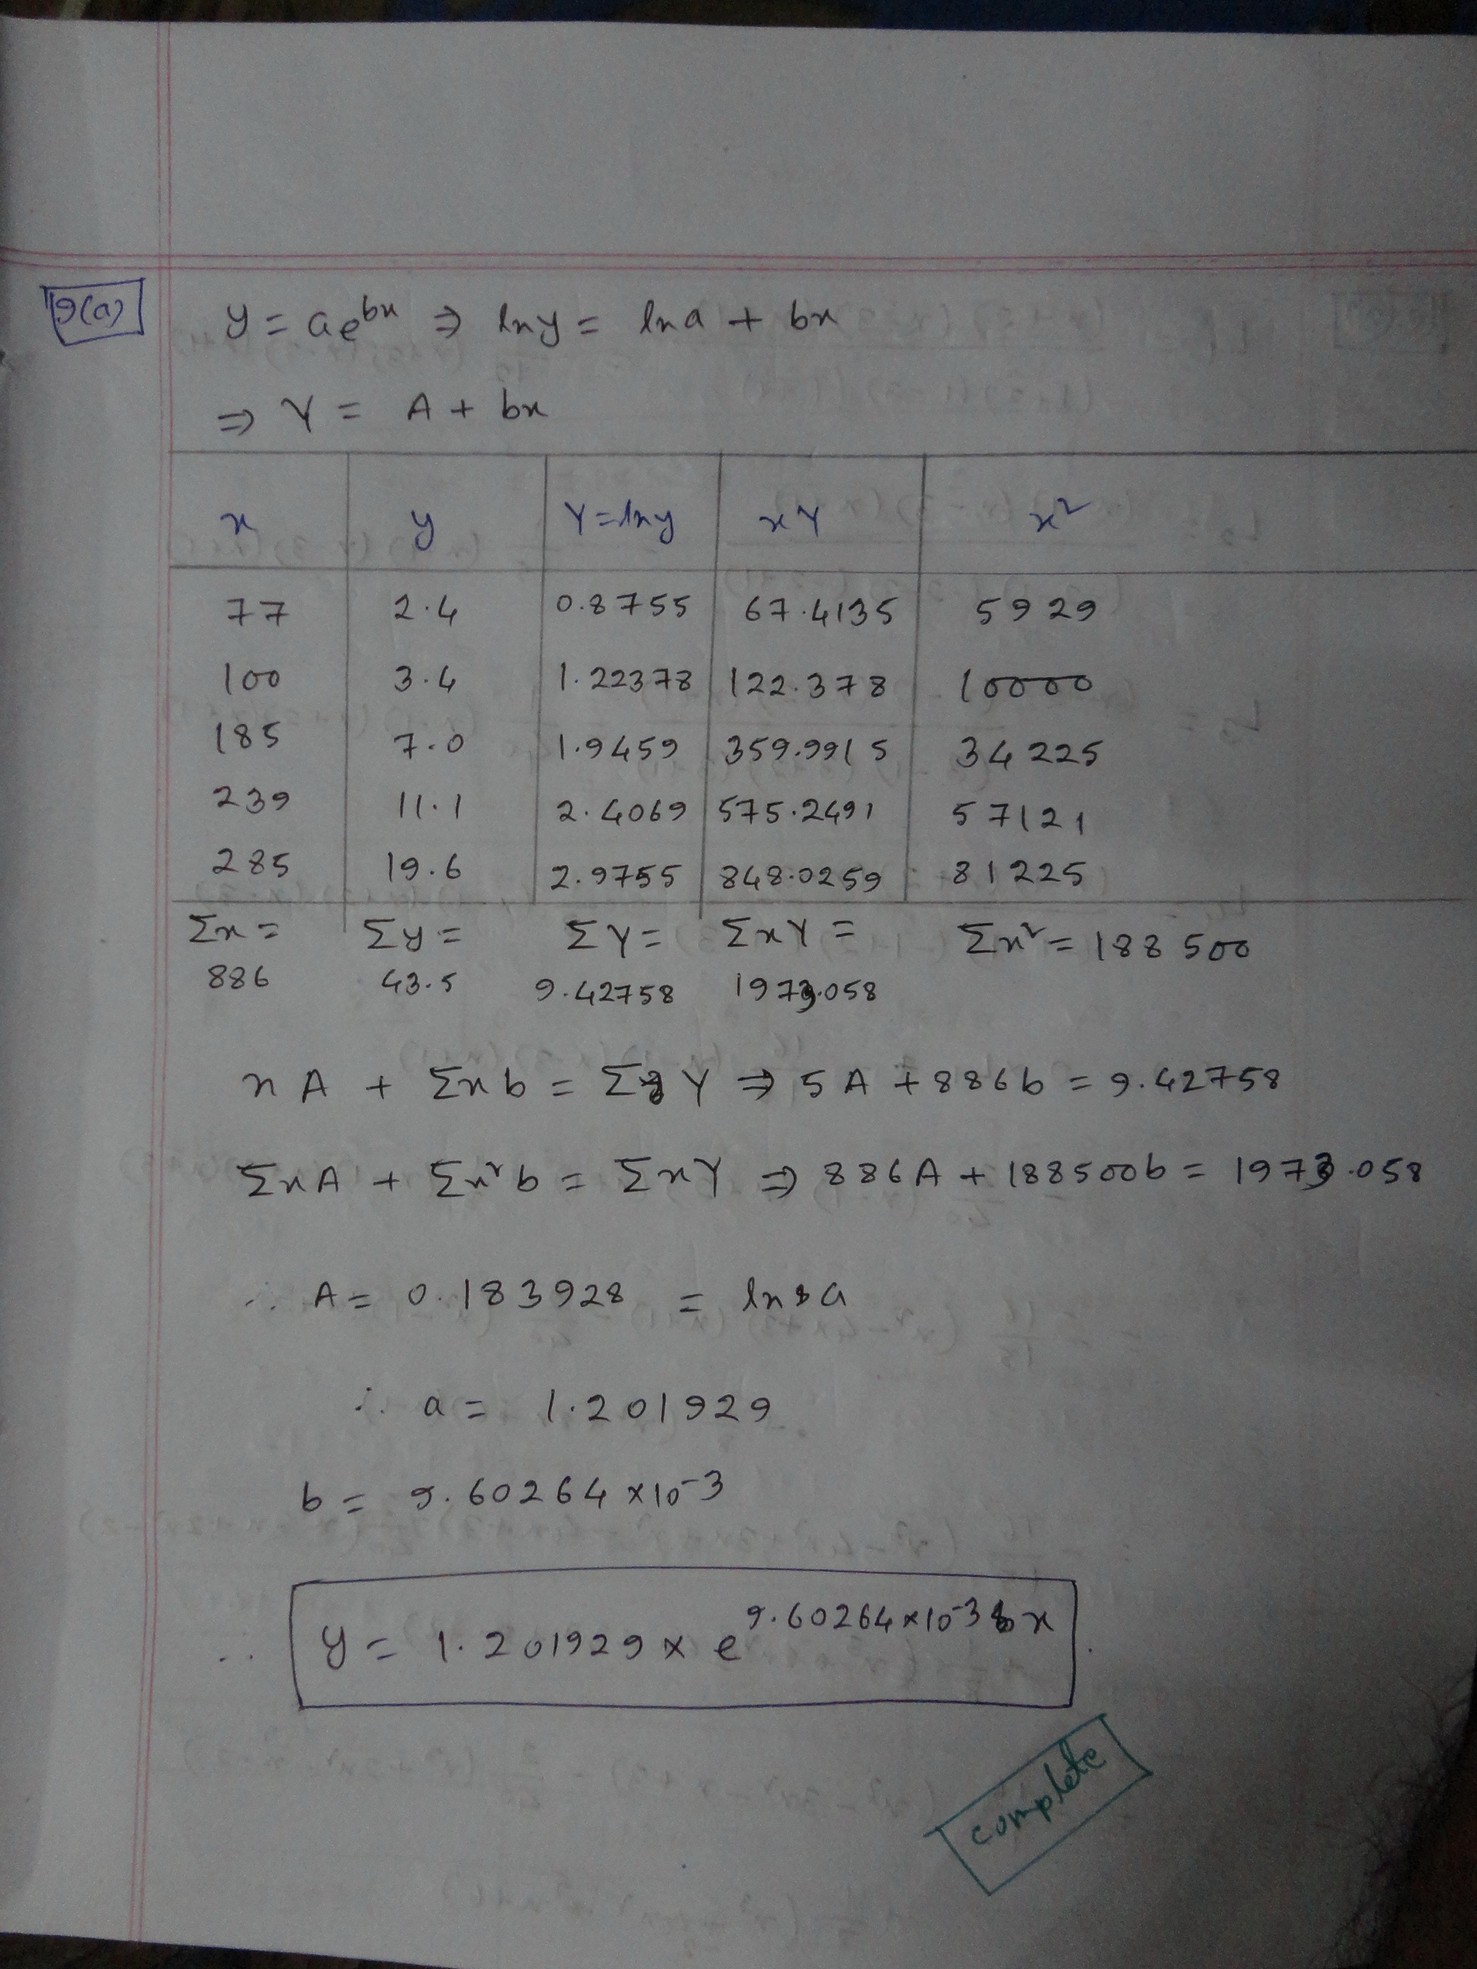 9(a)
y = ae^{bx} ⇒ ln y = ln a + bx
⇒ Y = A + bx
x y Y = ln y xY x²
77 2.4 0.8755 67.4135 5929
100 3.4 1.22378 122.378 10000
185 7.0 1.9459 359.9915 34225
239 11.1 2.4069 575.2491 57121
285 19.6 2.9755 848.0259 81225
Σx = Σy = ΣY = ΣxY = Σx² = 188500
886 43.5 9.42758 1973.058
nA + Σxb = ΣY ⇒ 5A + 886b = 9.42758
ΣxA + Σx²b = ΣxY ⇒ 886A + 188500b = 1973.058
∴ A = 0.183928 = ln a
∴ a = 1.201929
b = 9.60264 × 10⁻³
∴ y = 1.201929 × e^{9.60264 × 10⁻³ x}
complete